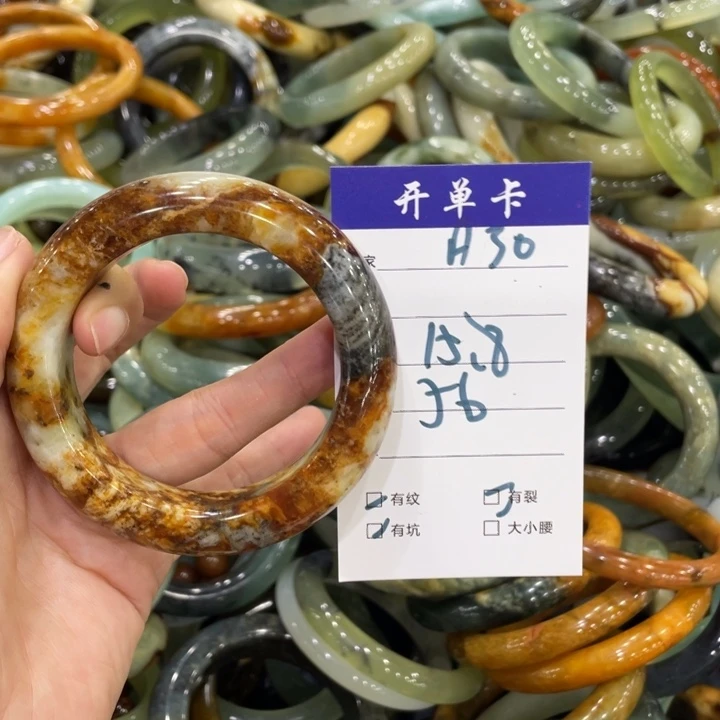 开单卡
家 H30
15.8
56
有纹 有裂
有坑 大小腰